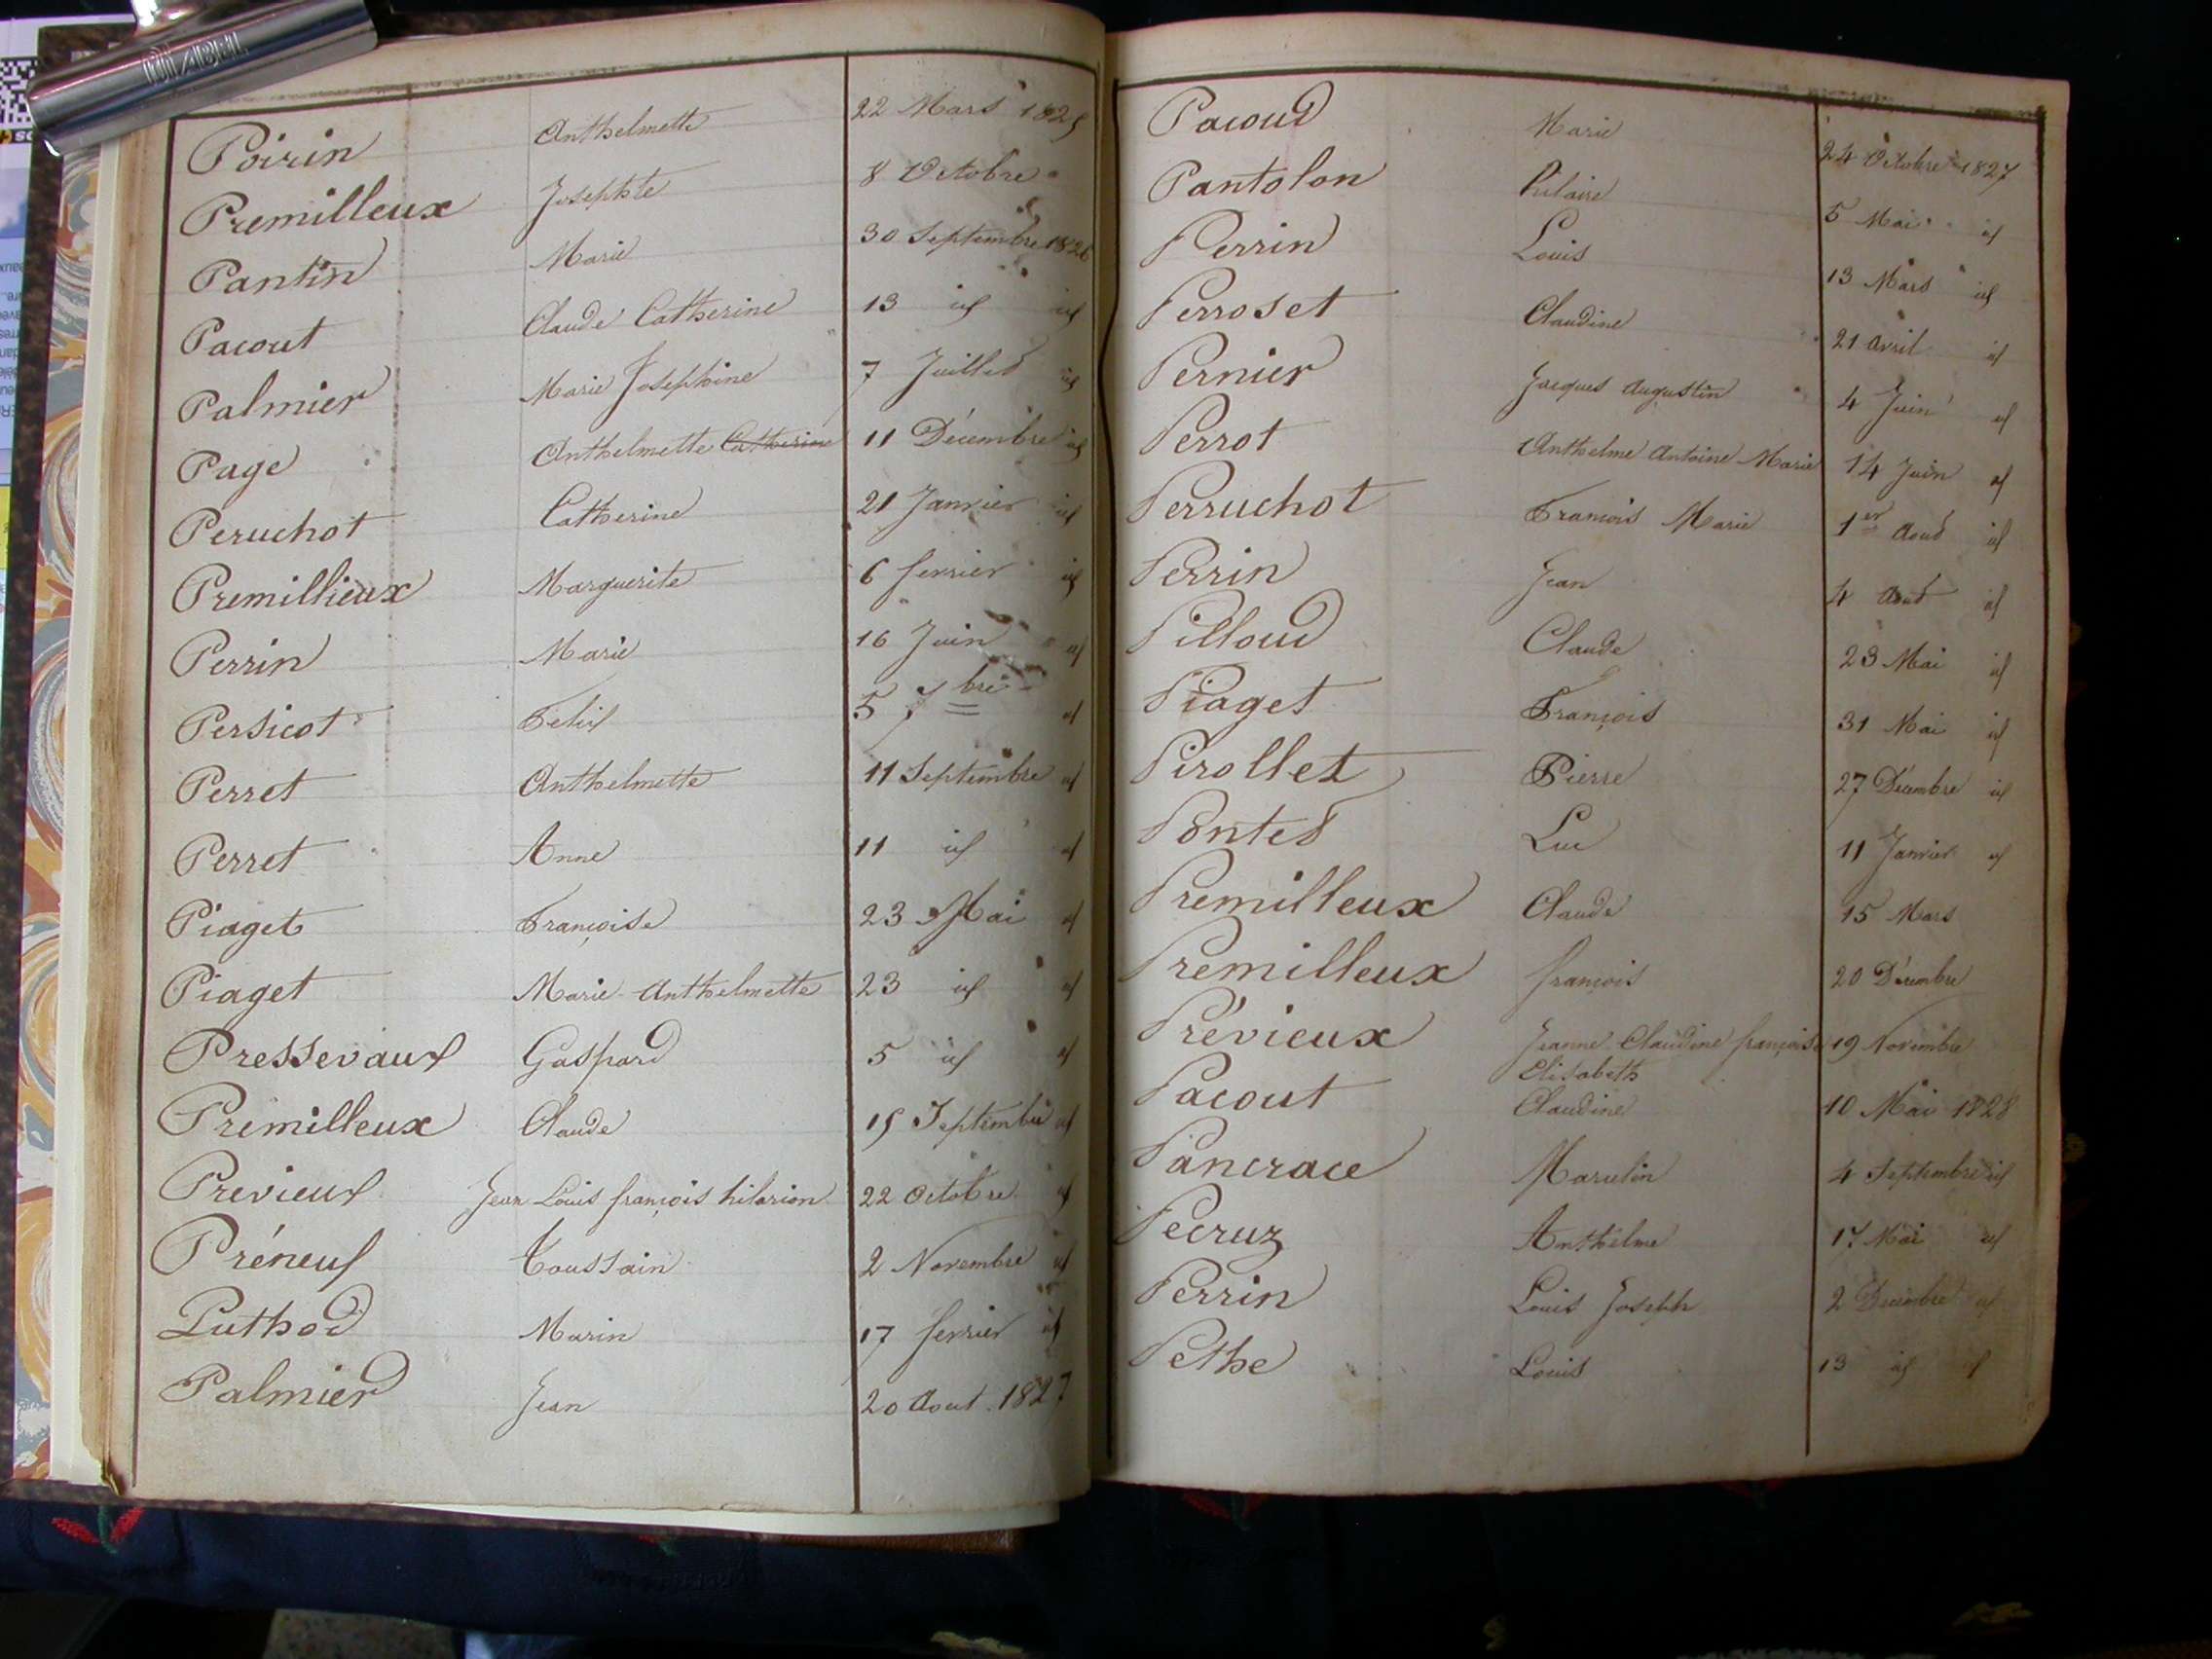 Poirin Anthelmette 22 Mars 1825
Premilleux Josephte 8 Octobre "
Pantin Marie 30 Septembre 1826
Pacout Claude Catherine 13 id id
Palmier Marie Josephine 7 Juillet id
Page Anthelmette Catherine 11 Décembre id
Peruchot Catherine 21 Janvier id
Premillieux Marguerite 6 fevrier id
Perrin Marie 16 Juin id
Persicot Felix 5 7bre id
Perret Anthelmette 11 Septembre id
Perret Anne 11 id id
Piaget Françoise 23 Mai id
Piaget Marie Anthelmette 23 id id
Pressevaux Gaspard 5 id id
Premilleux Claude 15 Septembre id
Previeux Jean Louis françois hilarion 22 Octobre id
Préneuf Toussain 2 Novembre id
Puthod Marin 17 fevrier id
Palmier Jean 20 Aout 1827
Pacoud Marie 24 Octobre 1827
Pantolon hilaire 5 Mai id
Perrin Louis 13 Mars id
Perroset Claudine 21 Avril id
Pernier Jacques Augustin 4 Juin id
Perrot Anthelme Antoine Marie 14 Juin id
Perruchot François Marie 1er Aout id
Perrin Jean 4 Aout id
Pilloud Claude 23 Mai id
Piaget François 31 Mai id
Pirollet Pierre 27 Décembre id
Pontet Luc 11 Janvier id
Premilleux Claude 15 Mars
Premilleux françois 20 Décembre
Prévieux Jeanne Claudine françoise 19 Novembre
Elisabeth
Pacout Claudine 10 Mai 1828
Pancrace Marulin 4 Septembre id
Pecruz Anthelme 17 Mai id
Perrin Louis Joseph 2 Décembre id
Pethe Louis 13 id id